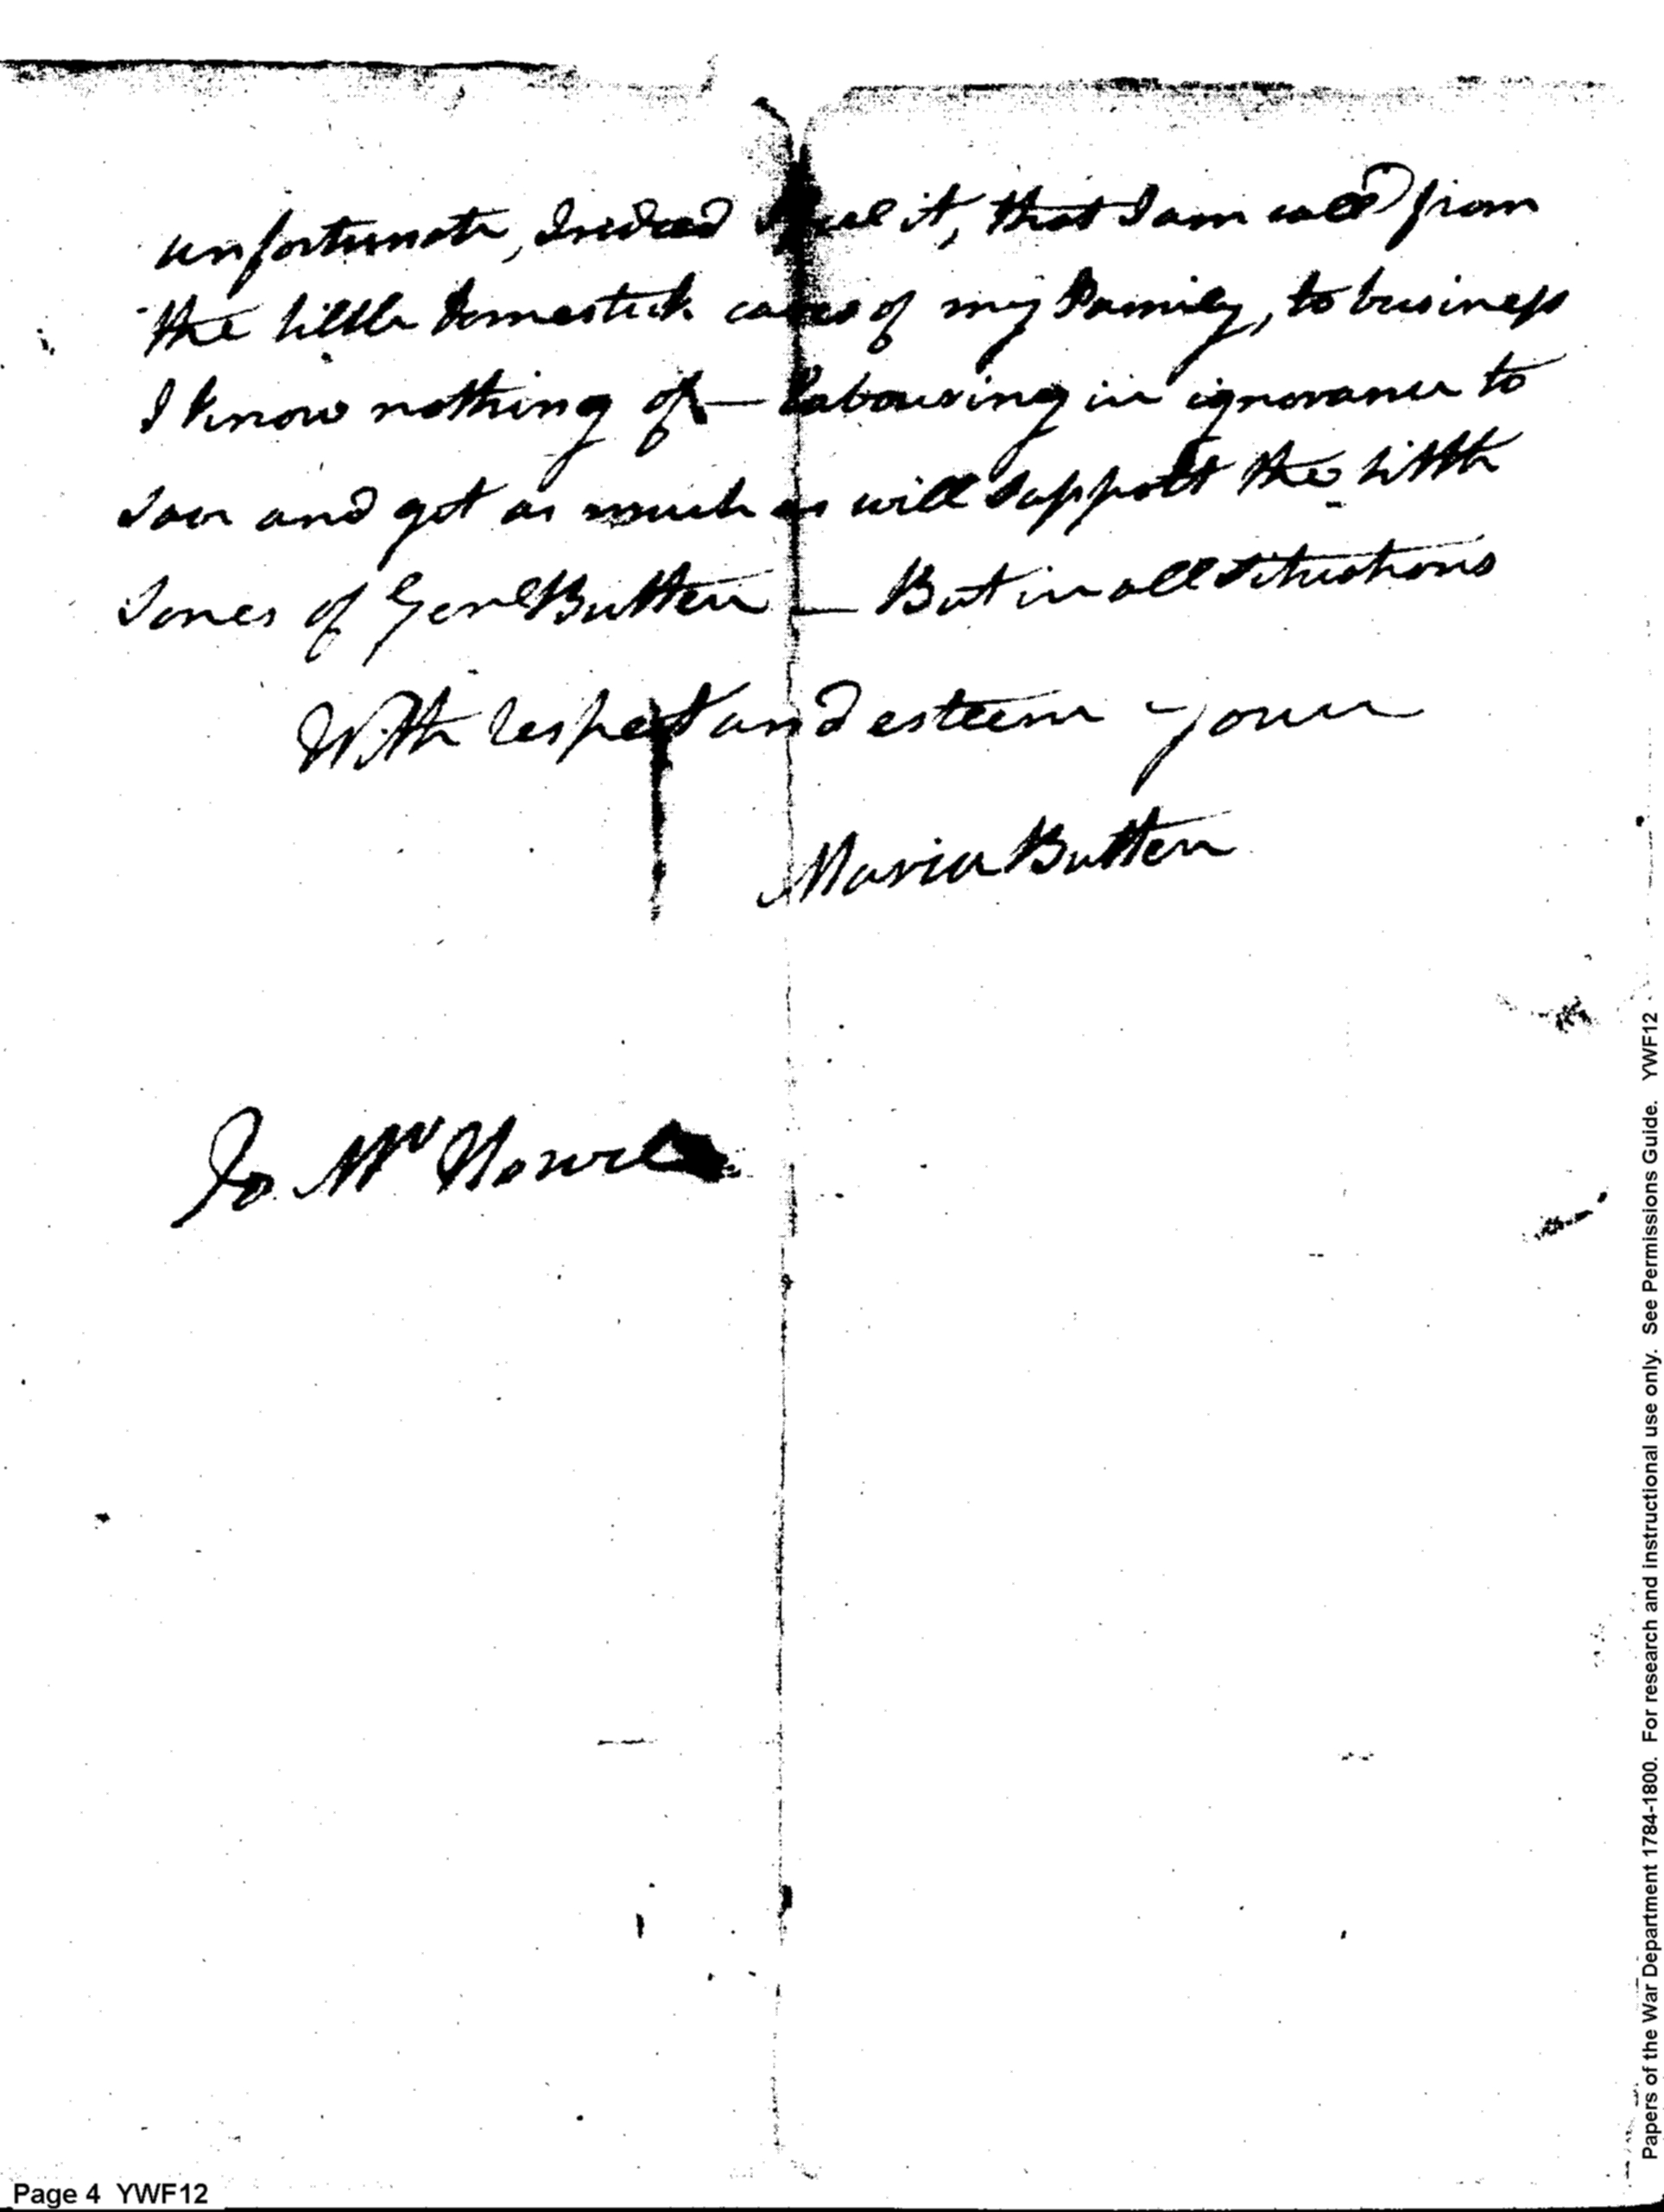 unfortunate, Indeed I feel it, that I am calld from
the little domestick cares of my Family, to business
I know nothing of — Labouring in ignorance to
Save and get as much as will Support the little
Sones of Genl Butler — But in all Situations
With respect and esteem your
Maria Butler
To Mr
Papers of the War Department 1784-1800. For research and instructional use only. See Permissions Guide. YWF12
Page 4 YWF12